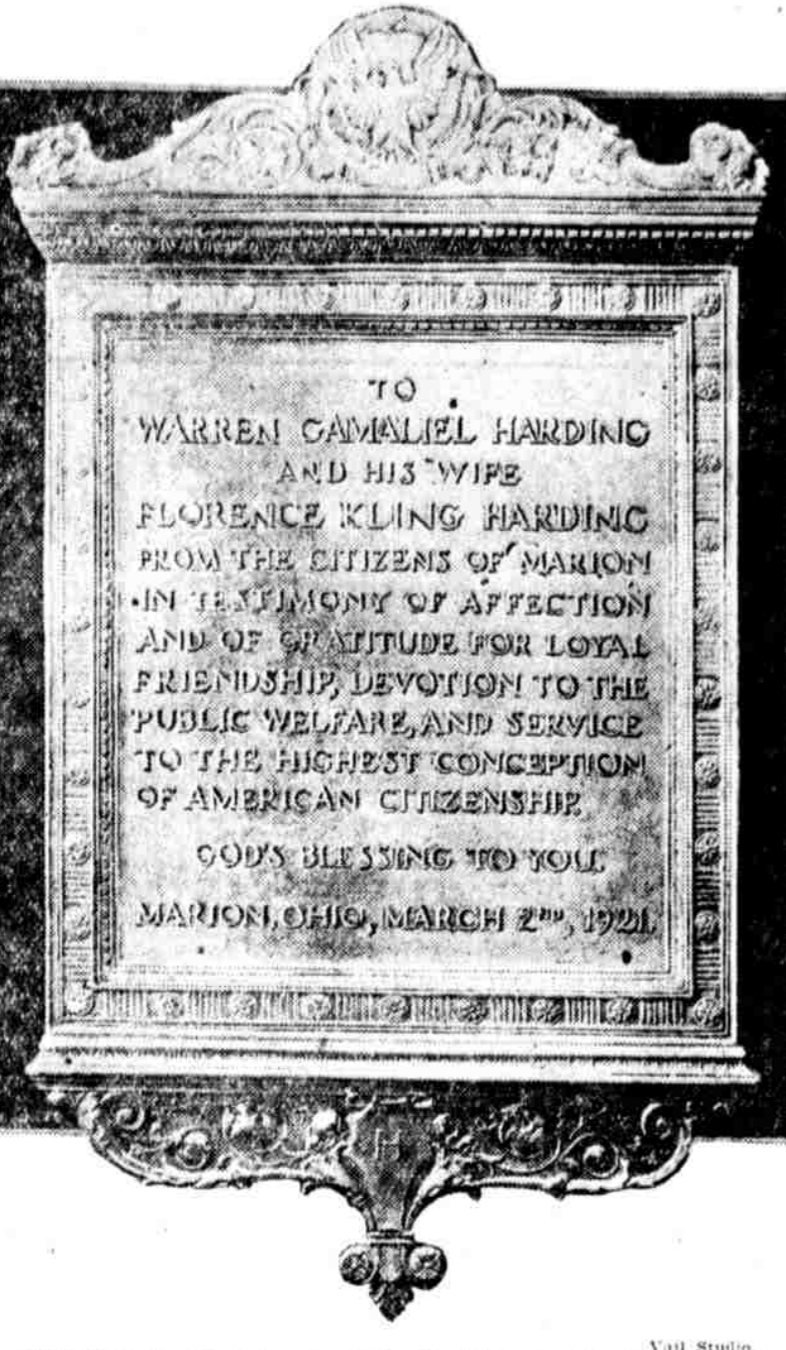 TO
WARREN GAMALIEL HARDING
AND HIS WIFE
FLORENCE KLING HARDING
FROM THE CITIZENS OF MARION
IN TESTIMONY OF AFFECTION
AND OF GRATITUDE FOR LOYAL
FRIENDSHIP, DEVOTION TO THE
PUBLIC WELFARE, AND SERVICE
TO THE HIGHEST CONCEPTION
OF AMERICAN CITIZENSHIP.
GOD'S BLESSING TO YOU.
MARION, OHIO, MARCH 2ND, 1921.
H
Vail Studio